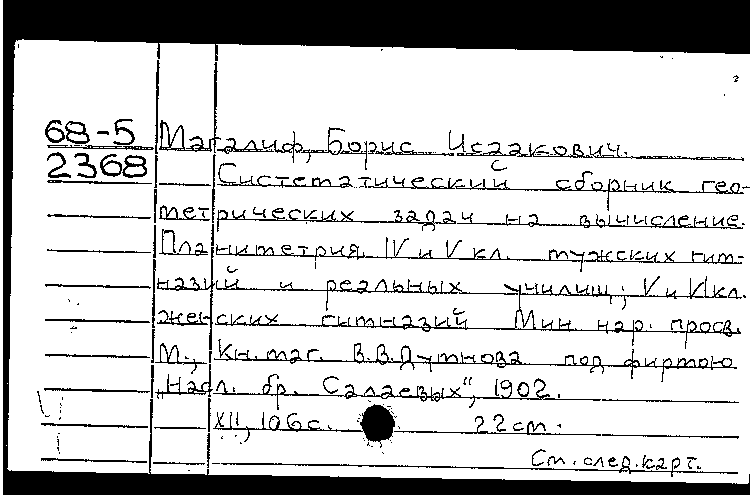 68-5 Магалиф, Борис Исаакович.
2368 Систематический сборник гео-
метрических задач на вычисление.
Планиметрия. IV и V кл. мужских гим-
назий и реальных училищ; V и VI кл.
женских гимназий Мин. нар. просв.
М., Кн. маг. В.В.Думнова под фирмою
„Насл. бр. Салаевых", 1902.
XII, 106 с. 22 см.
См. след. карт.